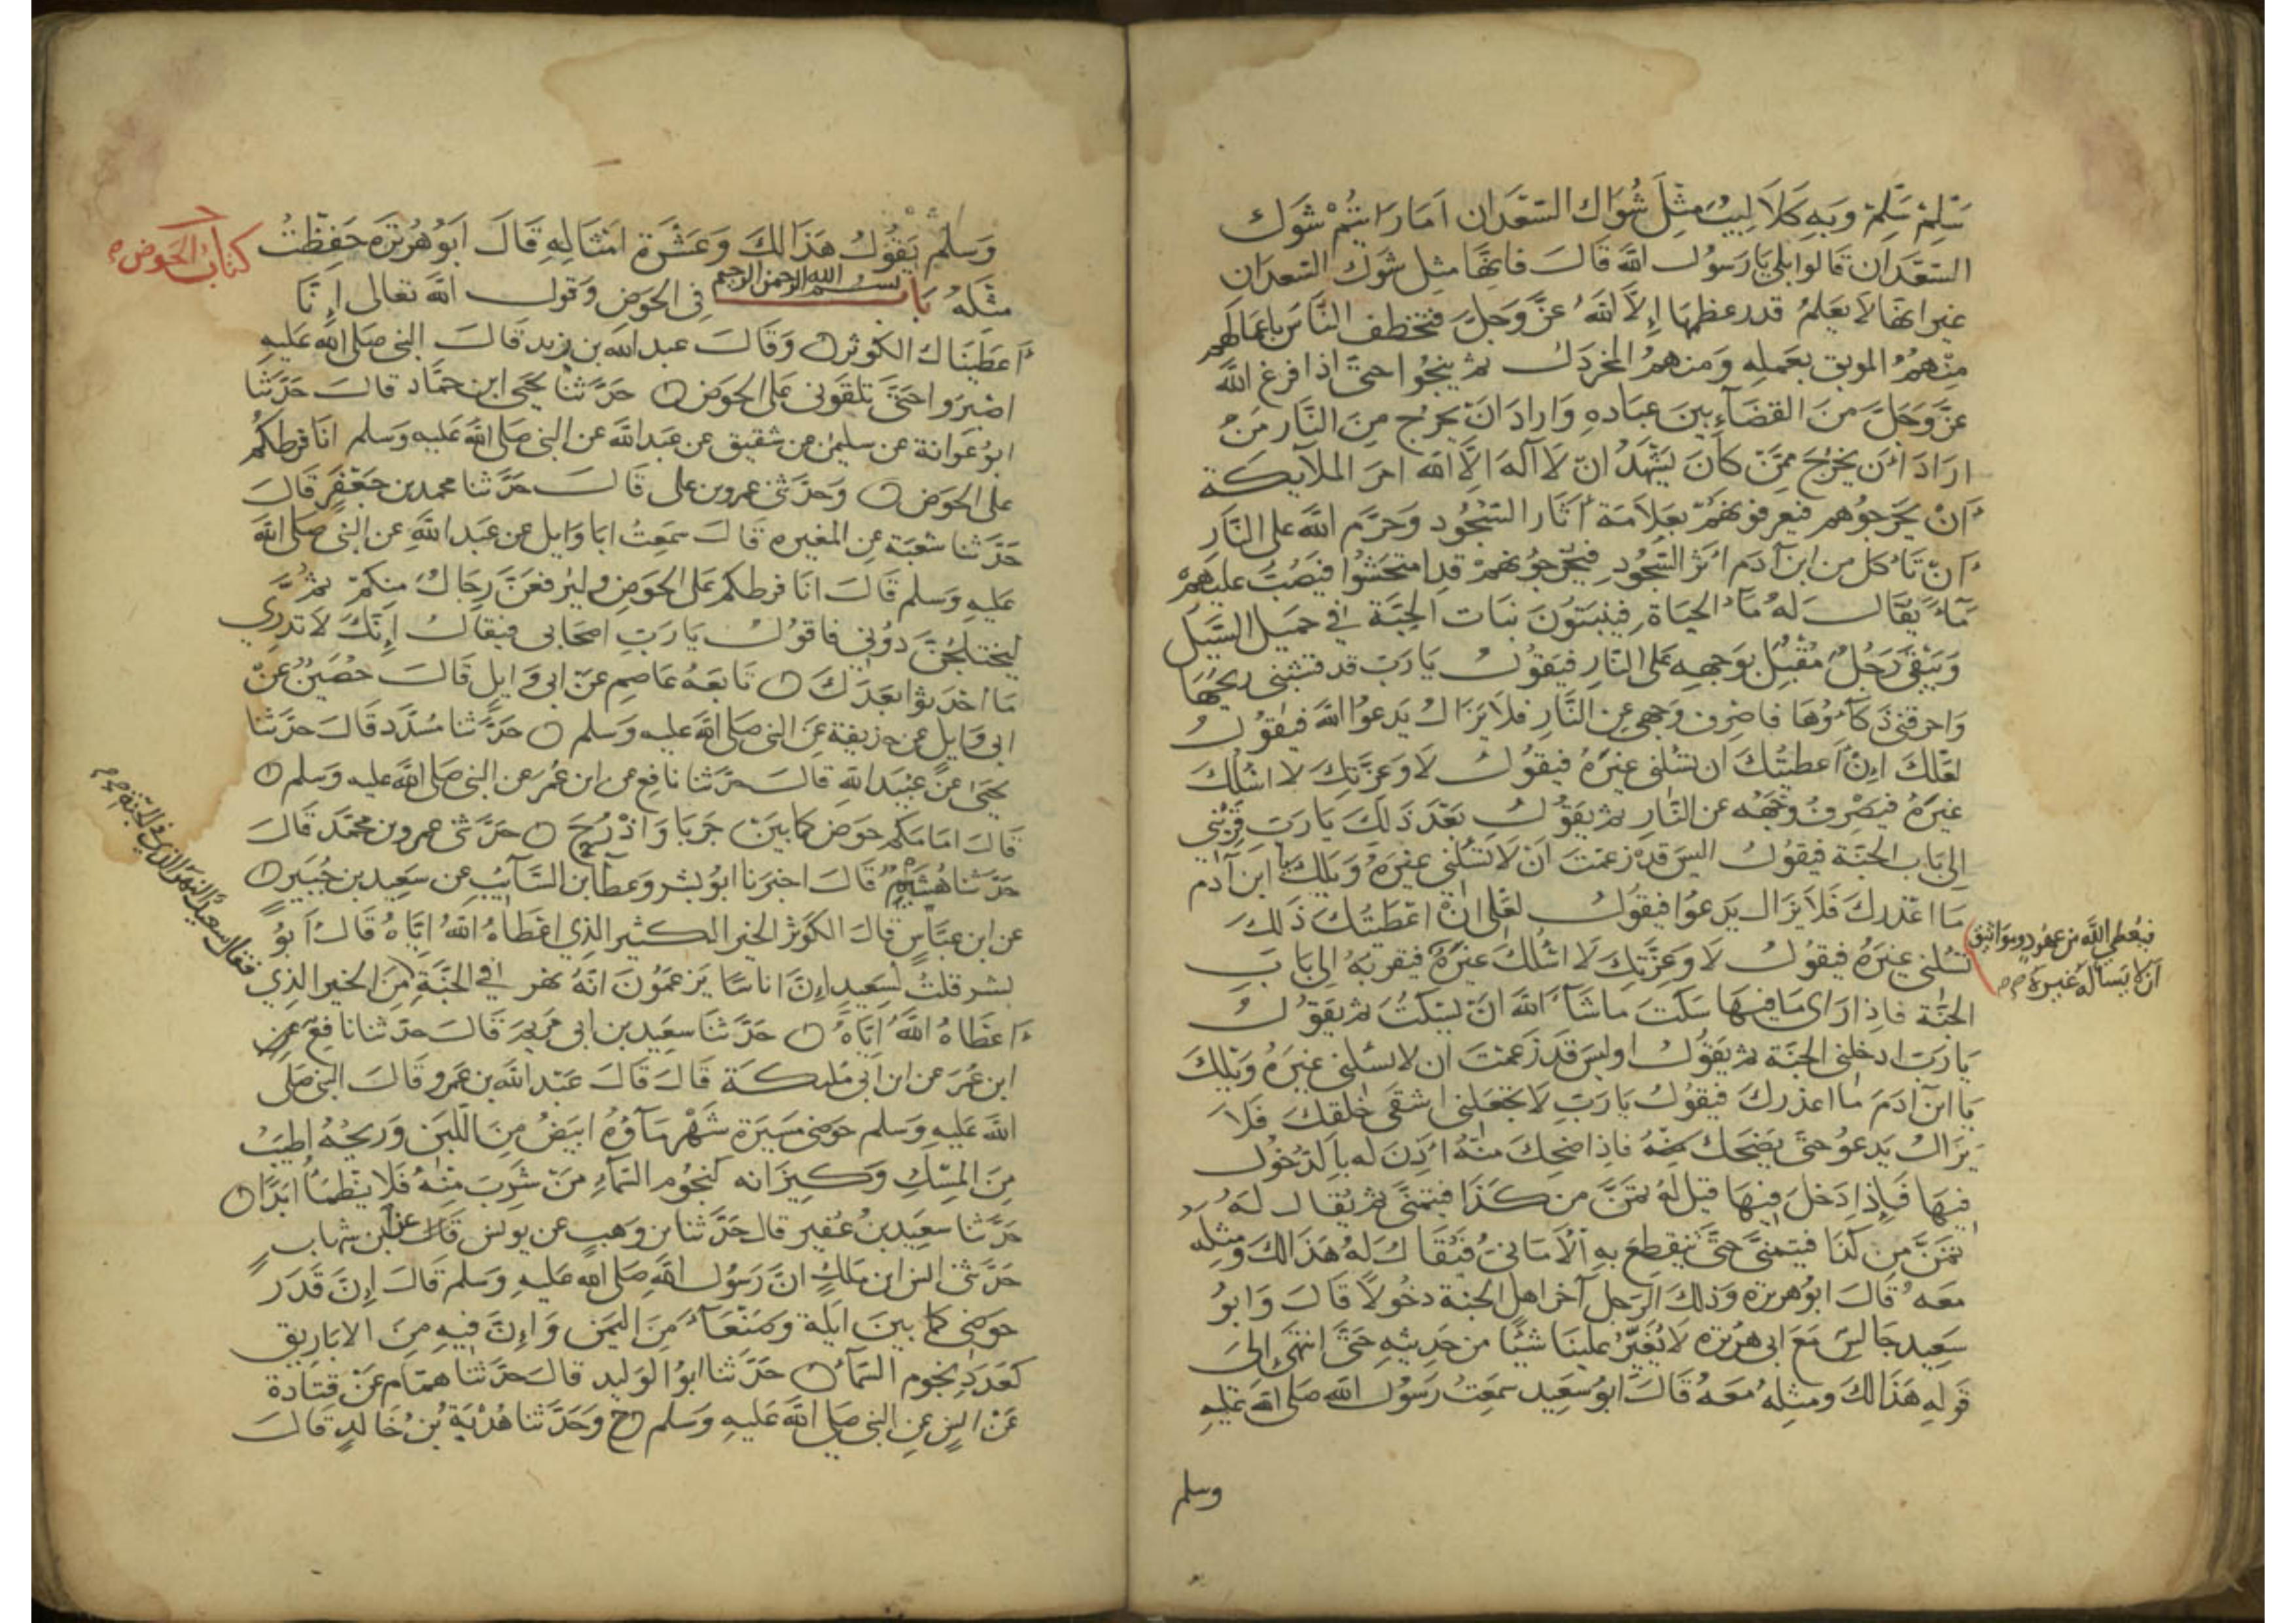 سَلِّمْ سَلِّمْ وَبِهِ كَلَالِيبُ مِثْلَ شَوْكِ السَّعْدَانِ اَمَا رَايْتُمْ شَوْكَ
السَّعْدَانِ قَالُوا بلى يَا رَسُولَ اللَّه قَالَ فانهَا مثل شَوْكَ السعدَانِ
غير انها لَا يَعْلَمُ قدر عظمهَا اِلَّا اللَّهُ عَزَّ وَجَلَّ فتخطف النَّاسَ باعمالهم
مِنْهُمُ الموبق بعَمله وَمنهمُ المخردَلُ ثم ينجُوا حتى اذا فرغ اللَّه
عَزَّ وَجَلَّ مِنَ القضَآءِ بينَ عبَاده وَارَادَ انْ يخرج مِنَ النَّار مَنْ
ارَادَ اَن يخرجَ ممَّنْ كَانَ يَشْهَدُ انْ لَا آلهَ اِلَّا الله امرَ الملآيكة
اَنْ يخرجوُهم فيعرفونهُمْ بِعَلَامَة آثَار السُّجُود وَحَرَّم اللَّه على النَّارِ
اَنْ تَأكل من ابن آدَم اَثر السُّجُود فيخرجُونهمْ قد امتحشُوا فيصُبّ عليهمْ
مَآءٌ يُقَالُ لهُ مَآءُ الحيَاة فينبتُونَ نبَات الحِبَّة في حميل السَّيْلِ
وَيَبْقَى رَجُلٌ مُقبِلٌ بوَجهه عَلى النَّار فيَقوُلُ يَا رَبّ قد قشبنى ريحُهَا
وَاحرقني ذَكَآؤُهَا فاصرف وَجهي عن النَّارِ فلا يزَالُ يَدعوُا اللَّه فيَقوُلُ
لعَلَّكَ اِنْ اَعطيتُكَ ان تسْئلني غيرَهُ فيقوُلُ لَا وَعزَّتِكَ لا اسْئلكَ
غيرَهُ فيَصْرفُ وَجْهَه عن النَّار ثم يقوُلُ بَعْدَ ذَلكَ يا رَبّ قَرّبنى
الى بَاب الجنَّة فيقوُلُ اليسَ قدْ زعمْتَ انْ لَا تسْئلني غيرَهُ وَيلكَ يا ابن آدَم
مَا اغدَركَ فلَا يزَالُ يَدعوُا فيقوُلُ لعَلى انْ اعْطيْتُكَ ذَلكَ
تسْئلني غيرَهُ فيقوُلُ لا وَعزَّتِكَ لَا اسْئلكَ غيرَهُ فيقربهُ الى بَابِ
فيُعْطِي اللَّه من عهُودٍ وموَاثيق
ان لا يَسأله غيرَه صح
الجنَّة فاذا رَاى مَا فيهَا سَكَتَ ما شَآءَ اللَّه انْ يسْكُتَ ثم يقوُلُ
يَا رَبّ ادخلني الجنَّة ثم يَقوُلُ اوليسَ قَدْ زعمْتَ ان لا تسئلني غيرَهُ وَيْلكَ
يَا ابن آدَمَ مَا اغدَركَ فيقوُلُ يَا رَبّ لَا تجعلني اشقَى خلقكَ فَلَا
يزَالُ يَدعوُ حتى يضحَكَ منهُ فاذا ضحِكَ منْهُ اَذِنَ له بالدّخوُل
فيهَا فَاِذا دَخلَ فيهَا قيل لَهُ تمَنَّ من كَذَا فيتمنَّى ثم يُقال لهُ
تمَنَّ مِن كَذَا فيتمَنَّى حتَّى يَنقطع به الْاَمَانِيُ فيُقَالُ لهُ هَذَا لكَ وَمِثلهُ
معَهُ قَالَ ابوُ هريرَه وَذلكَ الرَّجل آخر اهل الجنة دخوُلًا قَالَ وَابوُ
سَعِيد جَالسٌ مَعَ ابى هُرَيرَه لَا يُغَيّرُ علينَا شَيئًا من حَدِيثهِ حَتَّى انتهَى اِلىَ
قَولهِ هَذَا لكَ ومثلهُ مَعَهُ قَالَ ابوُ سَعِيد سمعْتُ رَسُولَ الله صَلى الله عَليْهِ
وسلم
وَسَلم يَقوُلُ هَذَا لكَ وَعَشَرَة امْثَالِهِ قَالَ ابَوُ هُرَيرَة حَفِظْتُ
كتاب الحَوض
مثلهُ بَاب بسم الله الرحمن الرحيم في الحَوض وَقول الله تعَالى اِنَّا
اَعطَينَاكَ الكَوثر وَقَالَ عبد الله بن زيد قَالَ النبي صَلى الله عَليْهِ
اصْبرُوا حَتَّى تلقَوني عَلى الحَوض حَدَّثنا يحيَى ابن حمَّاد قالَ حَدَّثنا
ابوُ عَوانة عن سليمٰن عن شقيق عن عَبْد اللَّه عن النبي صَلى اللَّه عَليه وَسَلم انَا فرطكمْ
على الحَوض وَحَدَّثنى عمرو بن على قَالَ حَدَّثنا محمد بن جَعْفَر قالَ
حَدَّثنا شعْبَة عن المغيره قَالَ سَمعْتُ ابَا وَايل عن عَبْد اللَّه عن النبي صَلى اللَّه
عَليهِ وَسَلم قَالَ انَا فرطكم عَلى الحَوض وليرفعَنَّ رجَالٌ منكمْ ثم
ليختلجُنَّ دوُني فاقوُلُ يَا رَبّ اصحَابى فيقالُ اِنَّكَ لَا تدري
مَا احدَثوا بَعْدَكَ تَابَعَهُ عَاصِم عَنْ ابى وَايل قَالَ حُصَينٌ عَنْ
ابى وَايل عن حذيفة عَن النبي صَلى اللَّه عليه وَسَلم حَدَّثنا مُسَدَّد قَالَ حَدَّثنا
يحيَى عَنْ عبَيْد الله قالَ حَدَّثنا نافع عن ابن عُمَرَ عن النبي صَلى اللَّه عَليه وَسَلم
قَالَ امَامَكم حَوض كما بينَ جَرْبَا وَاذْرُحَ حَدَّثنى عمرو بن محمَّد قَالَ
حَدَّثنا هُشَيْمٌ قَالَ اخبرَنا ابوُ بشر وَعطَآ ابن السَّآيب عن سَعِيد بن جُبَير
عن ابن عبَّاس قالَ الكَوثر الخير الكثير الذي اعْطاهُ اللهُ ايَّاهُ قَالَ اَبوُ
بشر قلتُ لسَعِيد اِنَّ اناسًا يَزعمُونَ انهُ نهر في الجنَّةِ مِنَ الخير الذِي
فقال سعيد النهر الذي في الجنة صح
اَعطَاهُ اللَّهُ ايَّاهُ حَدَّثنَا سعيد بن ابى مَريمَ قَالَ حدَّثنا نافعٌ عن
ابن عُمَرَ عن ابن اَبى مُليكة قَالَ قَالَ عَبْد الله بن عَمْرو قَالَ النبي صَلى
اللَّه عَليهِ وَسلم حوضى مَسيرَة شَهْر مَآؤُهُ ابيَضُ مِنَ اللَّبَن وَرِيحُهُ اطيَبُ
مِنَ المِسْكِ وَكيزَانه كنجُوم السَّمَآءِ مَنْ شَرِبَ مِنْهُ فَلَا يَظمَأ ابَدًا
حَدَّثنا سَعِيدُ بنُ عُفَير قال حَدَّثنا بن وَهب عن يونس قَالَ عن بن شهاب
حَدَّثنى انس ابن مَلكٍ انَّ رَسوُلَ اللَّهِ صَلى الله عَليه وَسَلم قَالَ اِنَّ قَدرَ
حَوضى كما بينَ ايلَة وَصَنْعَآءَ مِنَ اليَمَن وَاِنَّ فيهِ مِنَ الابَاريق
كعَدَدِ نجوم السَّمآءِ حَدَّثنا ابوُ الوَليد قالَ حَدَّثنا همَّام عَنْ قتَادة
عَنْ انس عن النبي صَلى اللَّه عَليهِ وَسَلم ح وَحَدَّثنا هُدْبَة بنُ خَالدٍ قَالَ